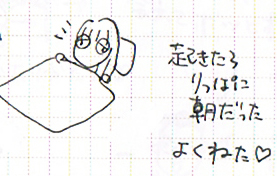 起きたら
りっぱに
朝だった
よくねた♡